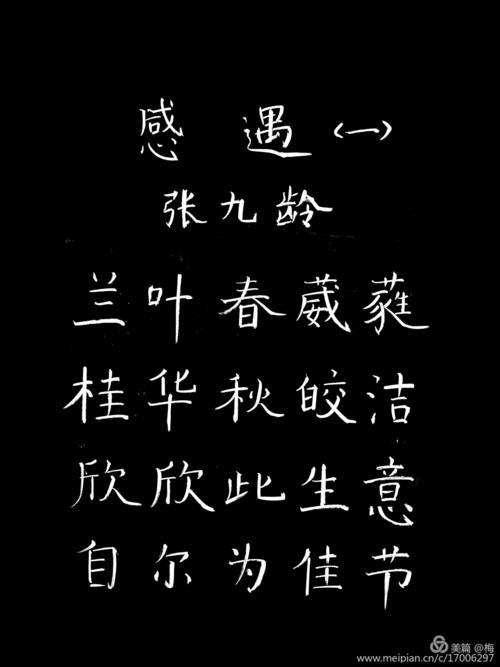 感遇〈一〉
张九龄
兰叶春葳蕤
桂华秋皎洁
欣欣此生意
自尔为佳节
美篇 @梅
www.meipian.cn/c/17006297